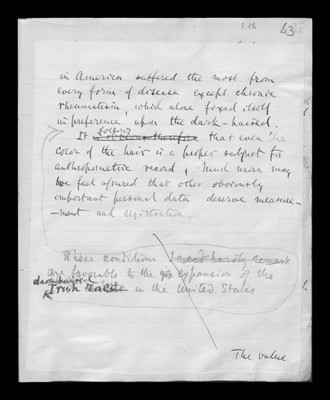 43
in America suffered the most from
every form of disease except chronic
rheumatism, which alone fixed itself
in preference upon the dark-haired.
It follows that even the
color of the hair is a proper subject for
anthropometric record, Much more may
we feel assured that other obviously
important personal data deserve measure-
-ment and registration.
These conditions I need hardly remark
are favorable to the expansion of the
dark haired
Irish race in the United States
The value